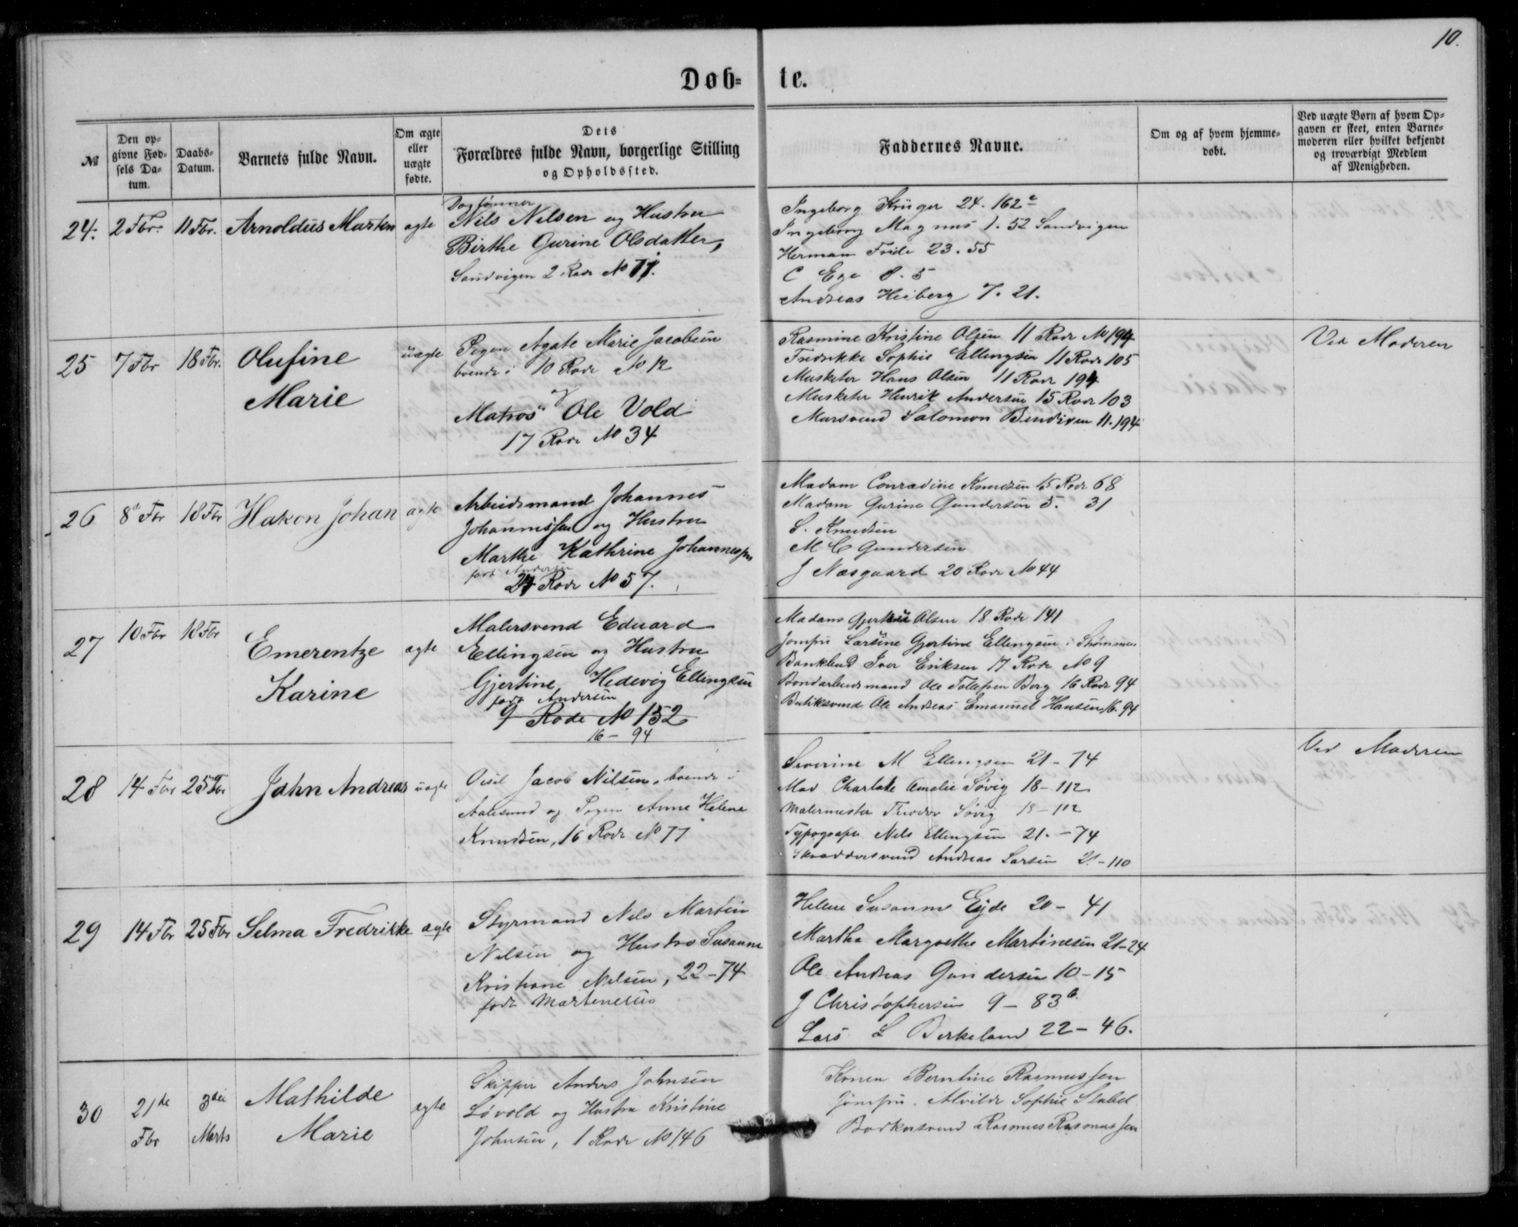 10.
Døbte.
№
Den opgivne Fødsels Datum.
Daabs-Datum.
Barnets fulde Navn.
Om ægte eller uægte fødte.
Dets Forældres fulde Navn, borgerlige Stilling og Opholdssted.
Faddernes Navne.
Om og af hvem hjemmedøbt.
Ved uægte Børn af hvem Opgaven er skeet, enten Barnemoderen eller hvilket bekjendt og troværdigt Medlem af Menigheden.
24. 2 Fbr. 11 Fbr. Arnoldus Martin ægte
Nils Nilsen og Hustru
Birthe Gurine Olsdatter,
Sandvigen 2 Rode No 77.
Ingeborg Krüger 24. 162
Ingeborg Magnus 1. 52 Sandvigen
Herman Friele 23. 55
C Ege 8. 5
Andreas Heiberg 7. 21.
25 7 Fbr 18 Fbr. Olufine
Marie
uægte
Pigen Agate Marie Jacobsen
boende i 10 Rode No 12
Matros Ole Vold
17 Rode No 34
Rasmine Kristine Olsen 11 Rode No 194
Fredrikke Sophie Ellingsen 11 Rode 105
Musketer Hans Olsen 11 Rode 194
Musketer Henrik Andersen 15 Rode 103
Mursvend Salomon Bendixen 11. 194
Ved Moderen
26 8 Fbr 18 Fbr Hakon Johan ægte
Arbeidsmand Johannes
Johannessen og Hustru
Marthe Kathrine Johannessen
født Andersen
24 Rode No 57.
Madam Conradine Knudsen 15 Rode 68
Madam Gurine Gundersen 5. 31
S. Knudsen
M C Gundersen
J Næsgaard 20 Rode No 44
27 10 Fbr 18 Fbr
Emerentze
Karine
ægte
Malersvend Eduard
Ellingsen og Hustru
Gjertine Hedevig Ellingsen
født Andersen
9 Rode No 152
16 - 94
Madam Olsen 18 Rode 141
Jomfru Larsine Gjertine Ellingsen i Strømmen
Bankbud Iver Eriksen 17 Rode No 9
Bondarbeidsmand Ole Tollefsen Berg 16 Rode 94
Butiksvend Ole Andreas Emanuel Hansen 16. 94
28 14 Fbr 25 Fbr John Andreas uægte
Jacob Nilsen, boende i
Aalesund og Pigen Anne Helene
Knudsen, 16 Rode No 77
Severine M Ellingsen 21 - 74
Mad Charlotte Amalie Søvig 18 - 112
Malermester Theodor Søvig 18 - 112
Typograph Nils Ellingsen 21. - 74
Skræddersvend Andreas Larsen 21 - 110
Ved Moderen
29 14 Fbr 25 Fbr Selma Fredrikke ægte
Styrmand Nils Martin
Nilsen og Hustru Susanne
Kristiane Nilsen, 22 - 74
født Martinesen
Helene Susanne Eyde 20 - 41
Martha Margrethe Martinesen 21 - 24
Ole Andreas Gundersen 10 - 15
J Christophersen 9 - 83 b.
Lars L Birkeland 22 - 46.
30 21de
Fbr
3die
Marts
Mathilde
Marie
ægte
Skipper Anders Johnsen
Løvold og Hustru Kristine
Johnsen, 1 Rode No 146
Konen Berntine Rasmussen
Jomfru Alvilde Sophie Stabel
Bødkersvend Rasmus Rasmussen